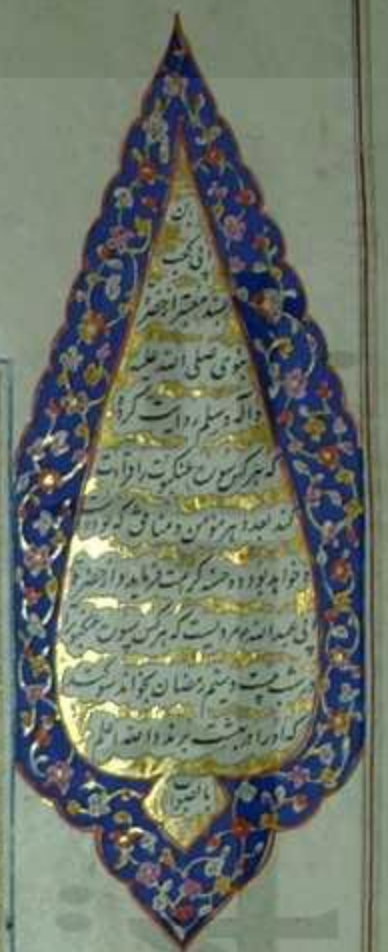 بن
ابی کعب
بسند معتبر از حضرت
نبوی صلی الله علیه
و آله و سلم روایت کرده
که هرکس سوره عنکبوت را قرائت
کند بعدد هر مؤمن و منافق که بود
و خواهد بود ده حسنه کرامت فرماید و از حضرت
ابی عبدالله مرویست که هرکس سوره عنکبوت
در شب بیست و سیم رمضان بخواند سوگند
که او را در بهشت برند و الله اعلم
بالصواب